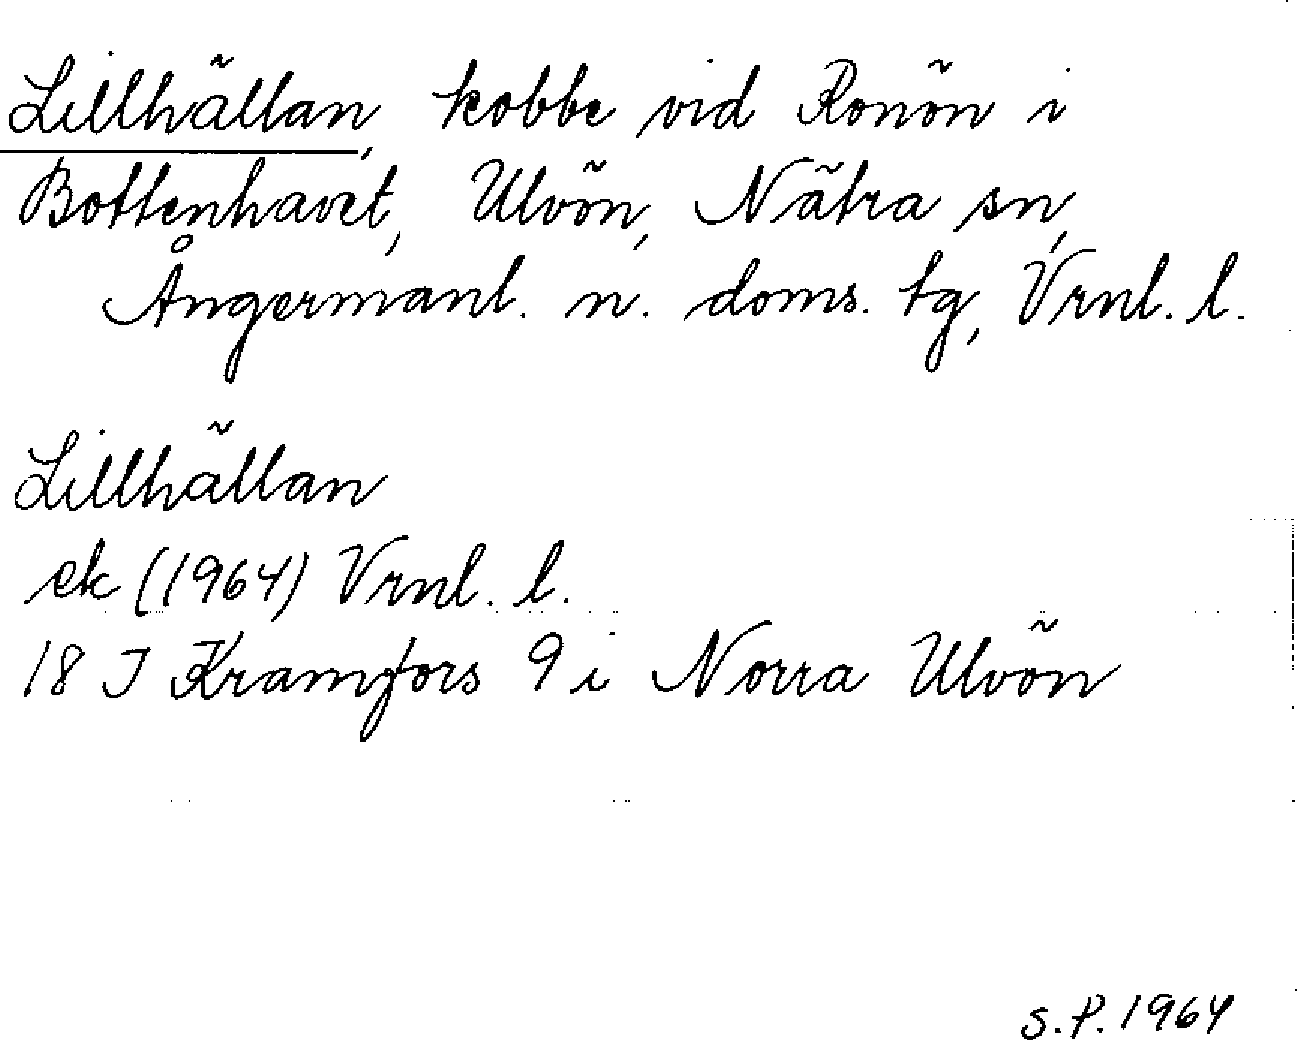 Lillhällan, kobbe vid Ronön i
Bottenhavet, Ulvön, Nätra sn,
Ångermanl. n. doms. tg, Vrnl. l.
Lillhällan
ek (1964) Vrnl. l.
18 J Kramfors 9 i Norra Ulvön
S.P. 1964